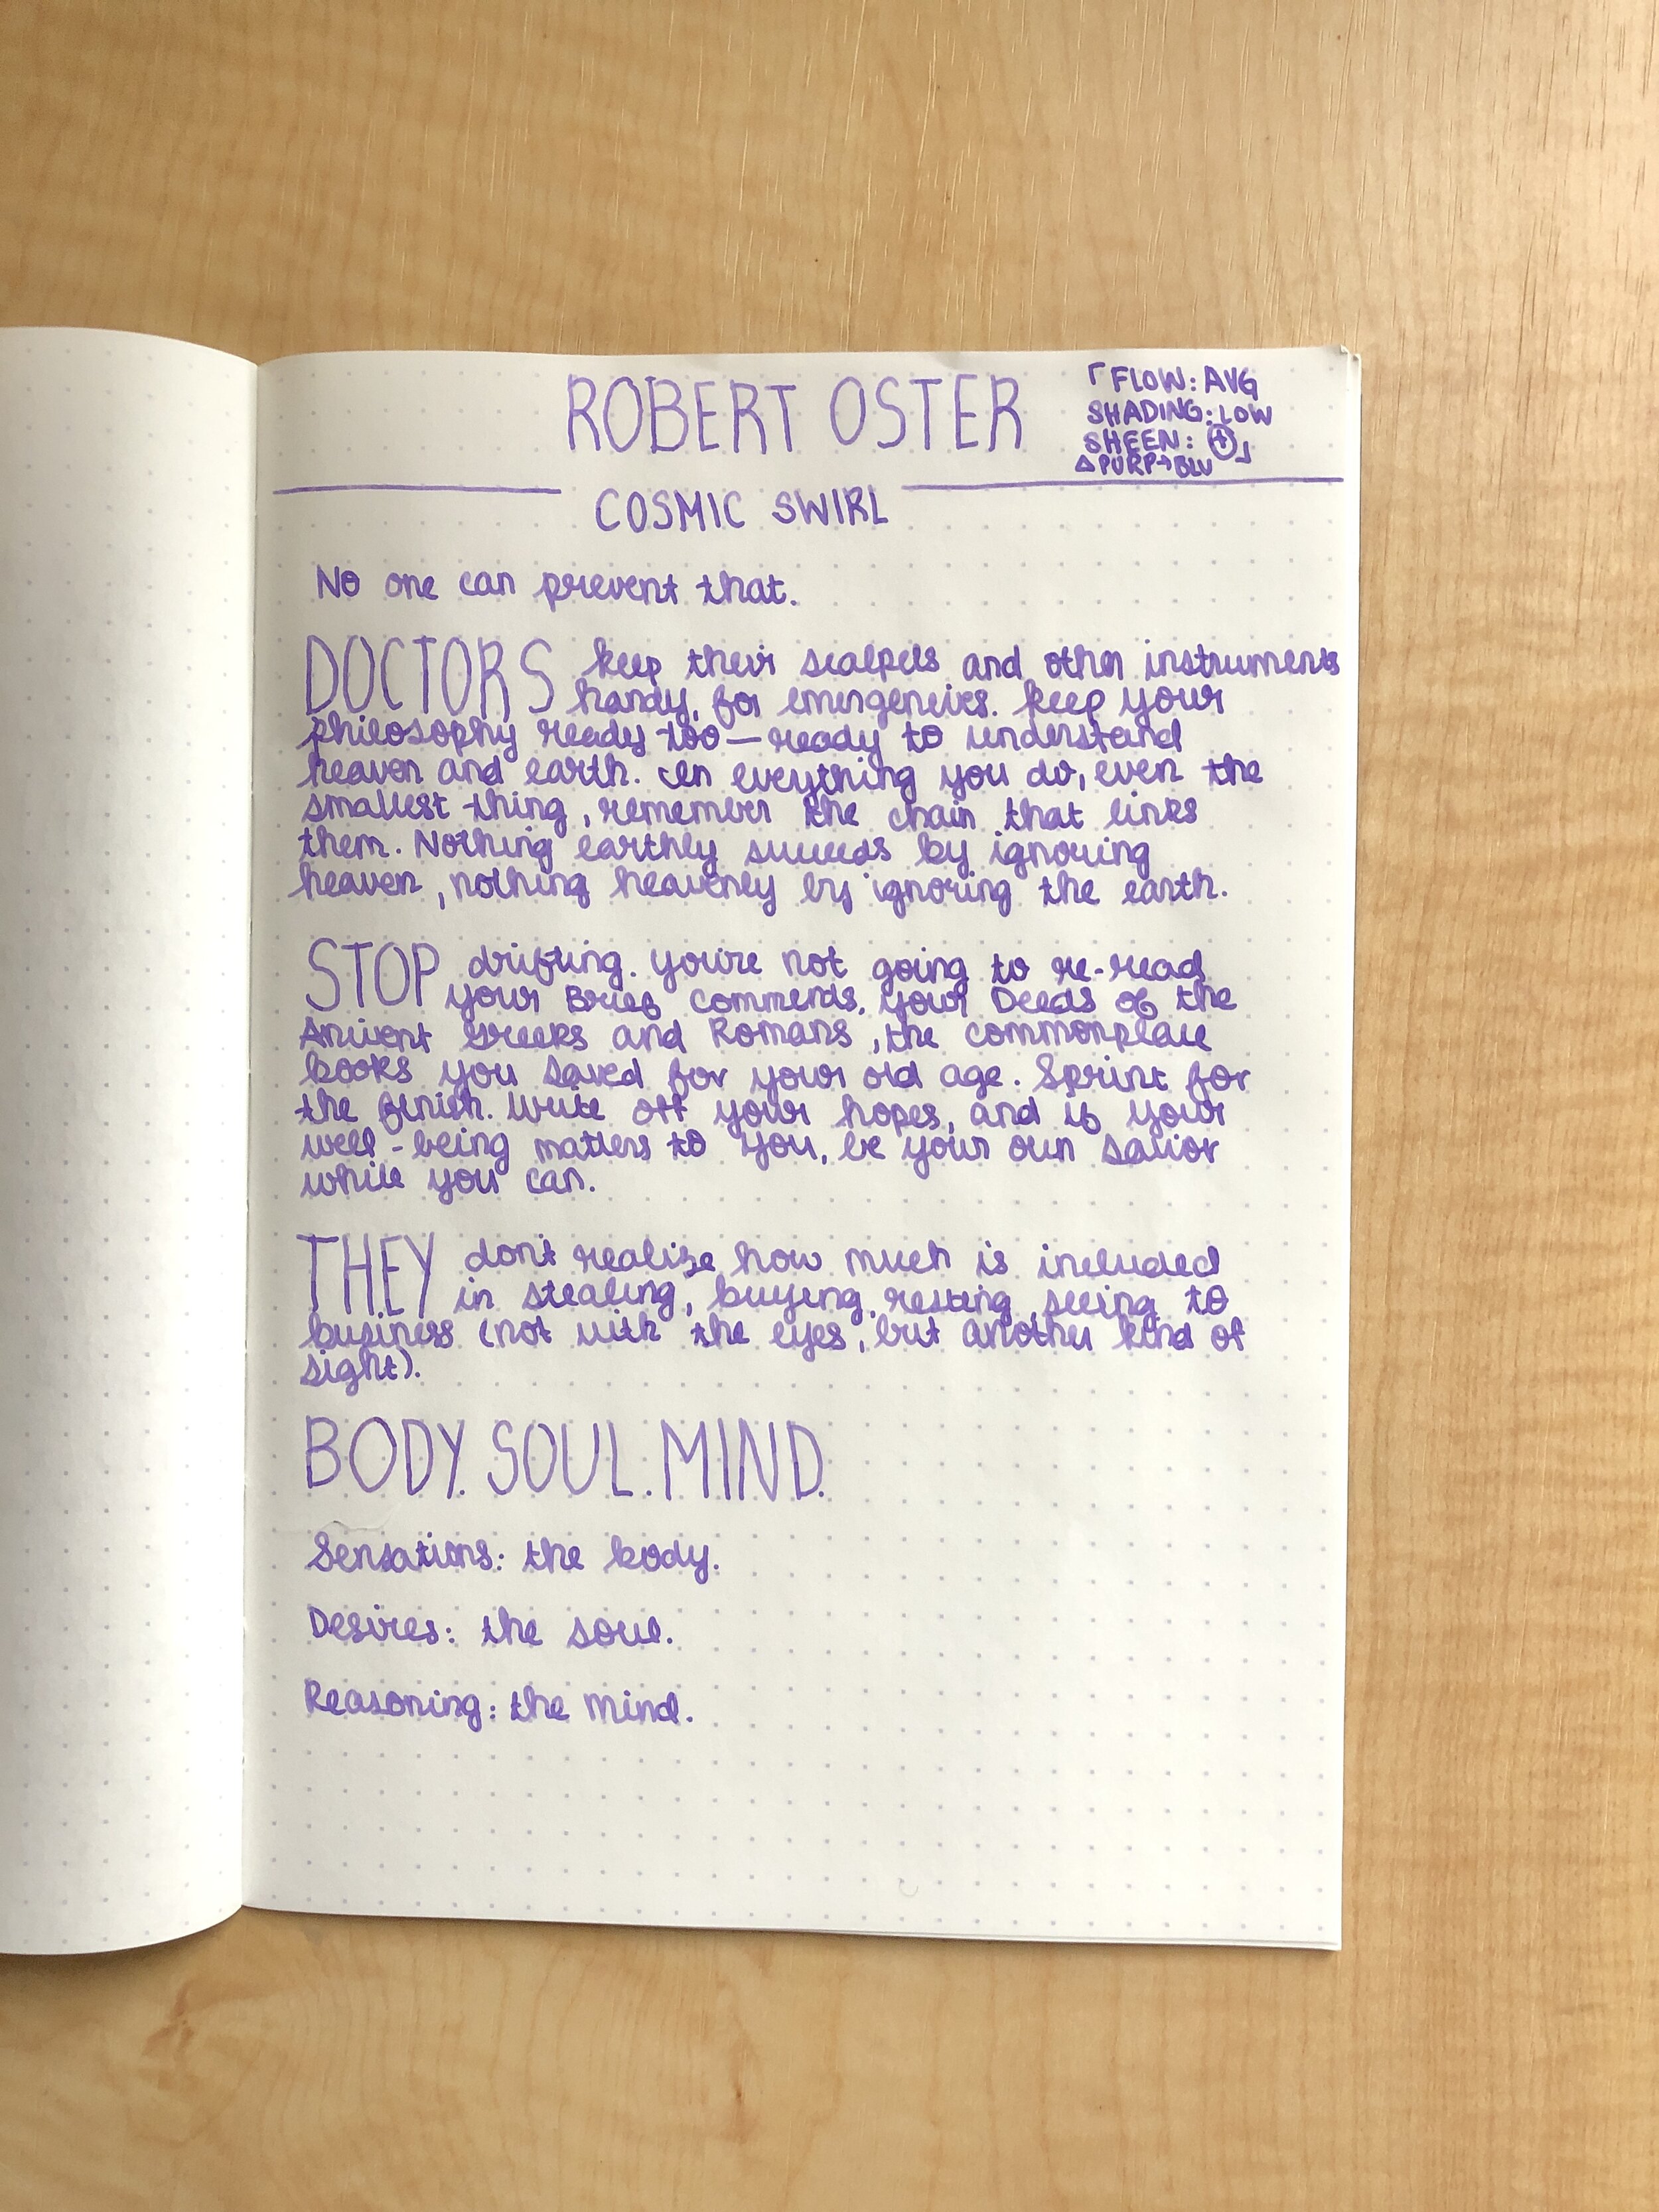 ROBERT OSTER
「FLOW: AVG
SHADING: LOW
SHEEN: ⊕」
△ PURP→BLU
COSMIC SWIRL
No one can prevent that.
DOCTORS keep their scalpels and other instruments
handy, for emergencies. Keep your
philosophy ready too—ready to understand
heaven and earth. In everything you do, even the
smallest thing, remember the chain that links
them. Nothing earthly succeeds by ignoring
heaven, nothing heavenly by ignoring the earth.
STOP drifting. You're not going to re-read
your Brief Comments, your Deeds of the
Ancient Greeks and Romans, the commonplace
books you saved for your old age. Sprint for
the finish. Write off your hopes, and if your
well-being matters to you, be your own savior
while you can.
THEY don't realize how much is included
in stealing, buying, resting, seeing to
business (not with the eyes, but another kind of
sight).
BODY. SOUL. MIND.
Sensations: the body.
Desires: the soul.
Reasoning: the mind.